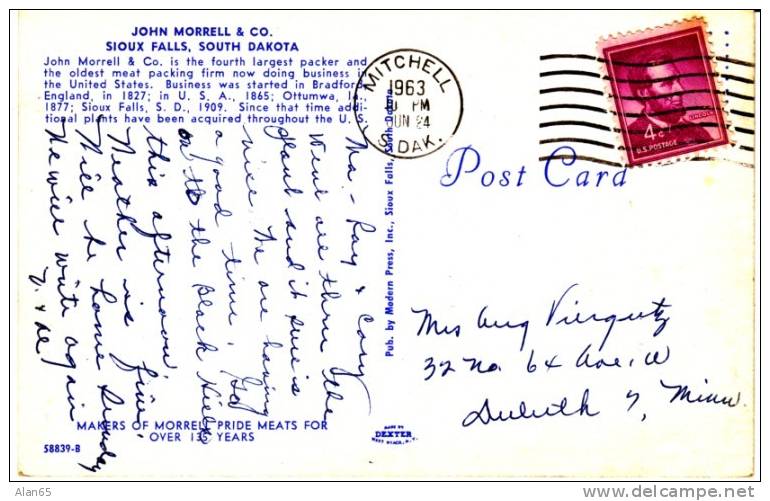 JOHN MORRELL & CO.
SIOUX FALLS, SOUTH DAKOTA
John Morrell & Co. is the fourth largest packer and
the oldest meat packing firm now doing business in
the United States. Business was started in Bradford,
England, in 1827; in U. S. A., 1865; Ottumwa, Ia.,
1877; Sioux Falls, S. D., 1909. Since that time addi-
tional plants have been acquired throughout the U. S.
Ma. - Ray & Cary
Went are thru the
plant and it sure is
nice. We are having
a good time. Got
on to the Black Hills
this afternoon.
Weather is fine.
Will be home Sunday
We will write again
V. & De
MAKERS OF MORRELL PRIDE MEATS FOR
OVER 135 YEARS
58839-B
Pub. by Modern Press, Inc., Sioux Falls, South Dakota
MADE BY
DEXTER
WEST NYACK, N. Y.
MITCHELL
1963
PM
JUN 24
S. DAK.
LINCOLN
4¢
U.S. POSTAGE
Post Card
Mrs Aug Viergutz
32 No. 64 Ave. W
Duluth 7, Minn.
Alan65
delcampe.net